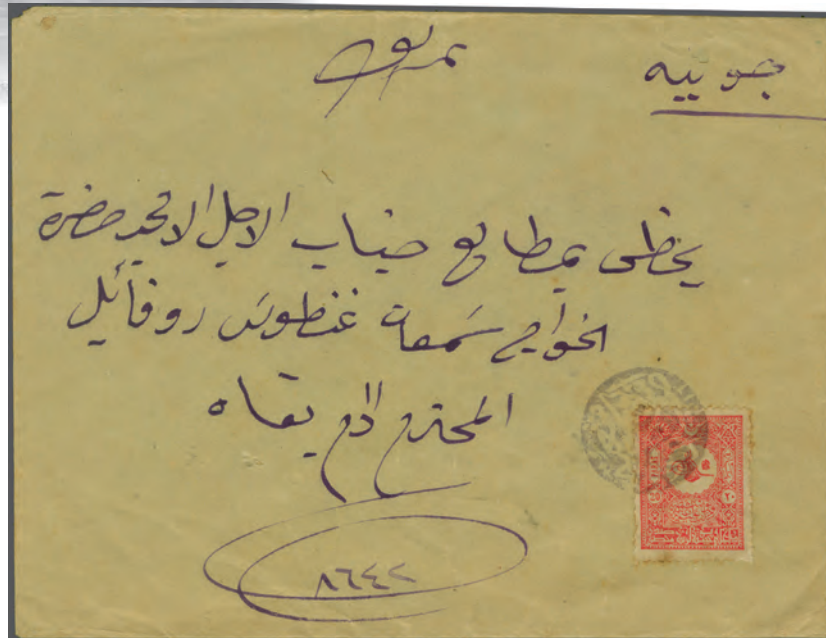 جونيه
يحظى بمطالع جناب الاجل الامجد حضرة
الخواجه سمعان غنطوس روفائيل
المحترم دام بقاه
٨٦٤٢
٢٠